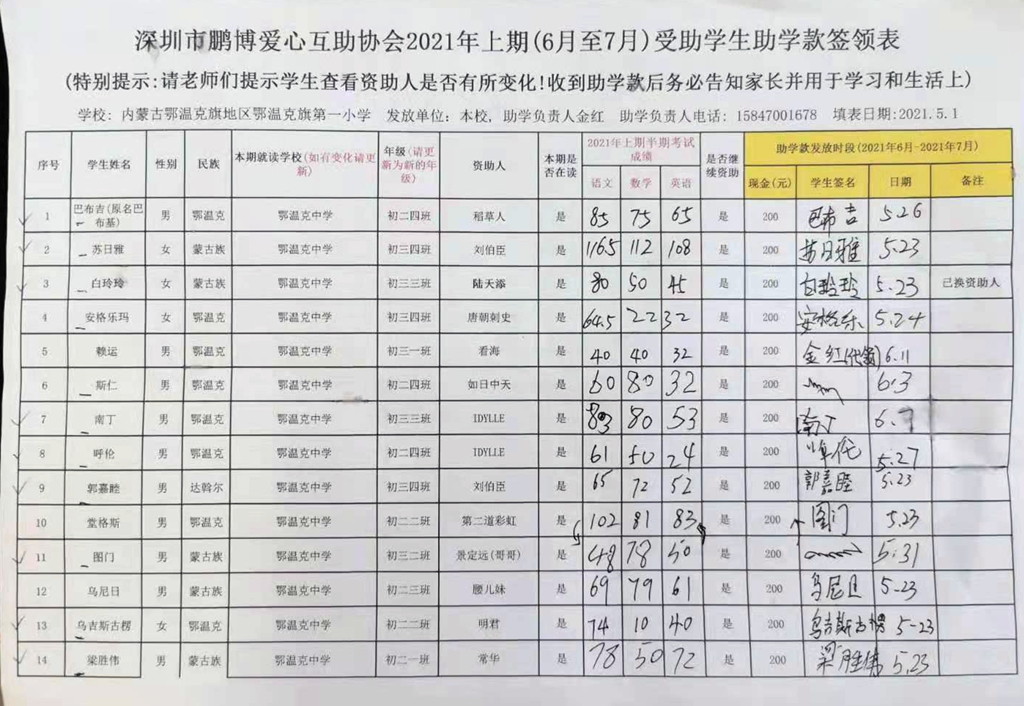 深圳市鹏博爱心互助协会2021年上期(6月至7月)受助学生助学款签领表
(特别提示:请老师们提示学生查看资助人是否有所变化!收到助学款后务必告知家长并用于学习和生活上)
学校: 内蒙古鄂温克旗地区鄂温克旗第一小学 发放单位: 本校, 助学负责人金红 助学负责人电话: 15847001678 填表日期:2021.5.1
序号 学生姓名 性别 民族 本期就读学校(如有变化请更新) 年级(请更新为新的年级) 资助人 本期是否在读 2021年上期半期考试成绩 是否继续资助 助学款发放时段(2021年6月-2021年7月)
语文 数学 英语 现金(元) 学生签名 日期 备注
1 巴布吉(原名巴布基) 男 鄂温克 鄂温克中学 初二四班 稻草人 是 85 75 65 是 200 巴布吉 5.26
2 苏日雅 女 蒙古族 鄂温克中学 初三四班 刘伯臣 是 116.5 112 108 是 200 苏日雅 5.23
3 白玲玲 女 蒙古族 鄂温克中学 初三三班 陆天添 是 80 50 45 是 200 白玲玲 5.23 已换资助人
4 安格乐玛 女 鄂温克 鄂温克中学 初三四班 唐朝刺史 是 64.5 22 32 是 200 5.24
5 赖运 男 鄂温克 鄂温克中学 初三一班 看海 是 40 40 32 是 200 金红(代领) 6.11
6 斯仁 男 鄂温克 鄂温克中学 初二四班 如日中天 是 60 80 32 是 200 6.3
7 南丁 男 鄂温克 鄂温克中学 初三三班 IDYLLE 是 80 53 是 200 南丁
8 呼伦 男 鄂温克 鄂温克中学 初二四班 IDYLLE 是 61 50 24 是 200 呼伦 5.27
9 郭嘉睦 男 达斡尔 鄂温克中学 初三四班 刘伯臣 是 65 72 52 是 200 郭嘉睦 5.23
10 堂格斯 男 鄂温克 鄂温克中学 初二二班 第二道彩虹 是 102 81 83 是 200 图门 5.23
11 图门 男 蒙古族 鄂温克中学 初三二班 景定远(哥哥) 是 48 78 50 是 200 5.31
12 乌尼日 男 蒙古族 鄂温克中学 初三四班 腰儿妹 是 69 79 61 是 200 乌尼日 5-23
13 乌吉斯古楞 女 鄂温克 鄂温克中学 初二二班 明君 是 74 10 40 是 200 乌吉斯古楞 5-23
14 梁胜伟 男 蒙古族 鄂温克中学 初二一班 常华 是 78 50 72 是 200 梁胜伟 5.23